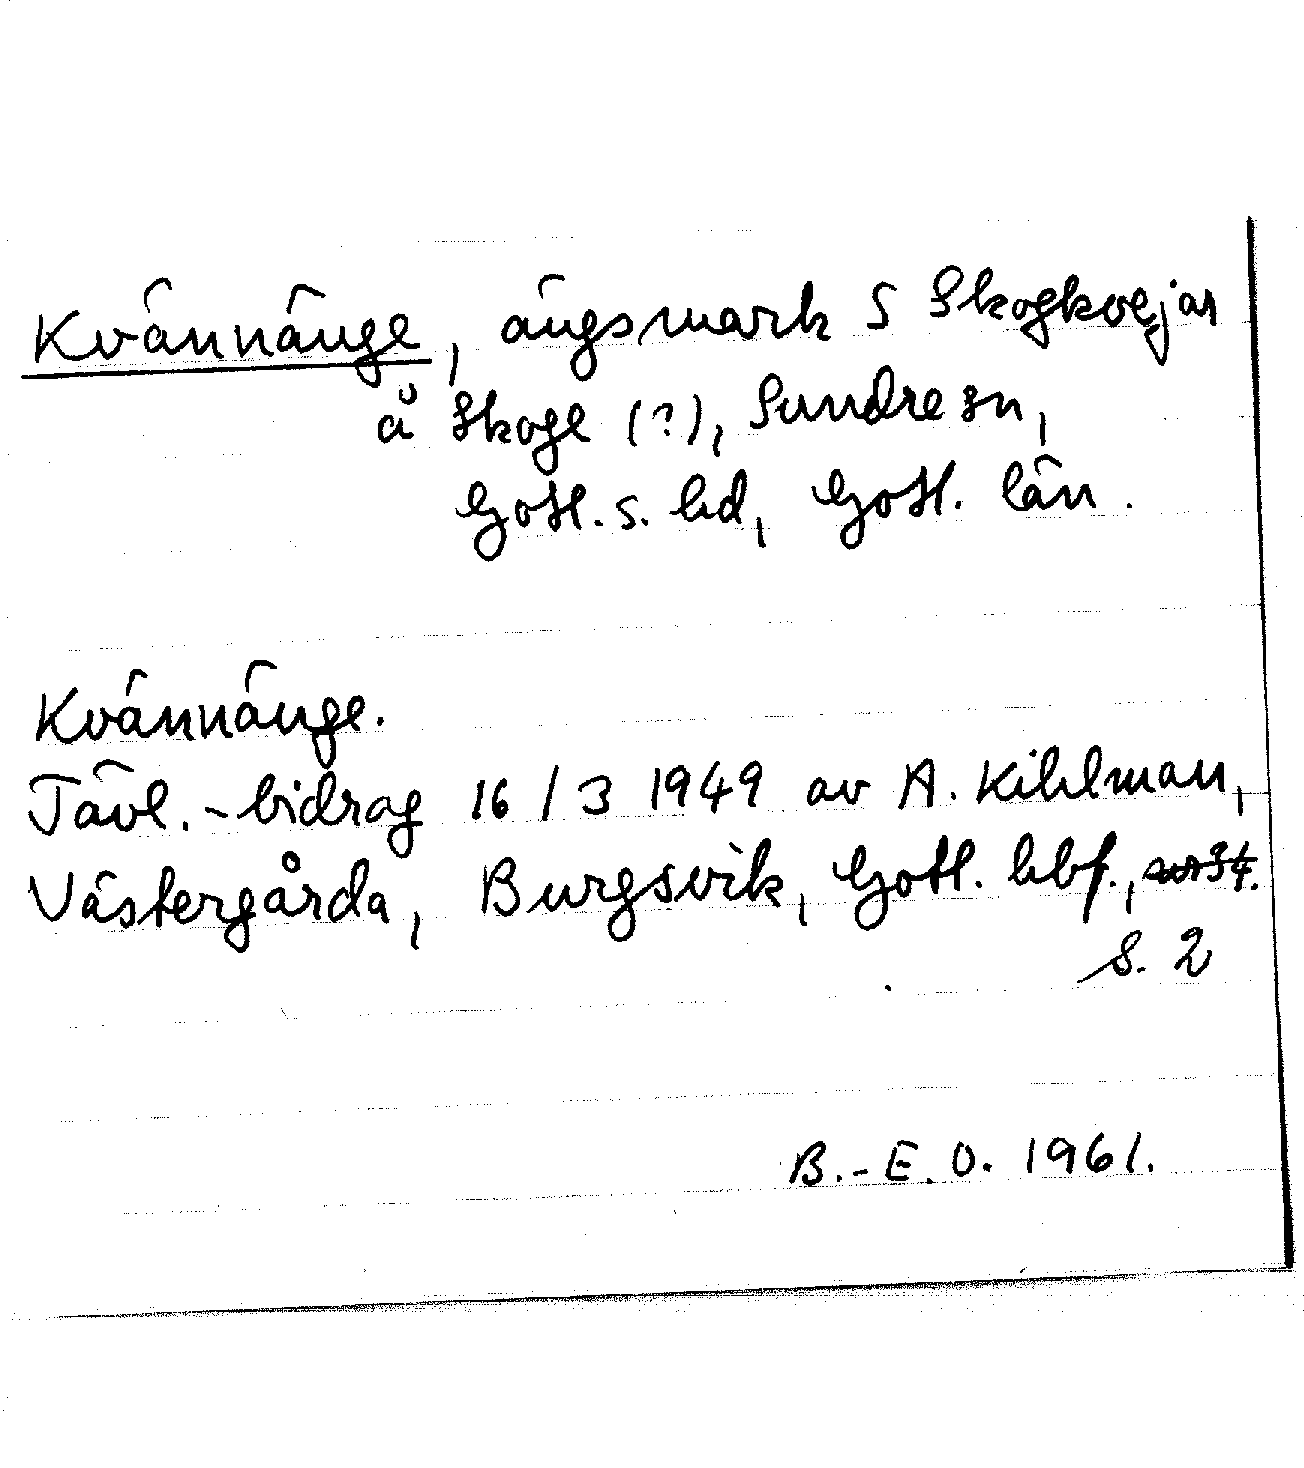 Kvännänge, ängsmark S Skogkvejar
å Skoge (?), Sundre sn,
Gotl. s. hd, Gotl. län.
Kvännänge.
Tävl.-bidrag 16/3 1949 av A. Kihlman,
Västergårda, Burgsvik, Gotl. hbf.,
s. 2
B.-E. O. 1961.